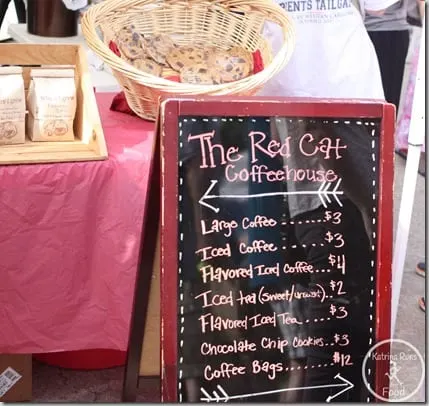 ENTS TAILGA
The Red Cat
Coffeehouse
Large Coffee ........$3
Iced Coffee ........$3
Flavored Iced Coffee...$4
Iced tea (sweet/unsweet)..$2
Flavored Iced Tea....$3
Chocolate Chip Cookies..$3
Coffee Bags........$12
Katrina Runs
For
Food